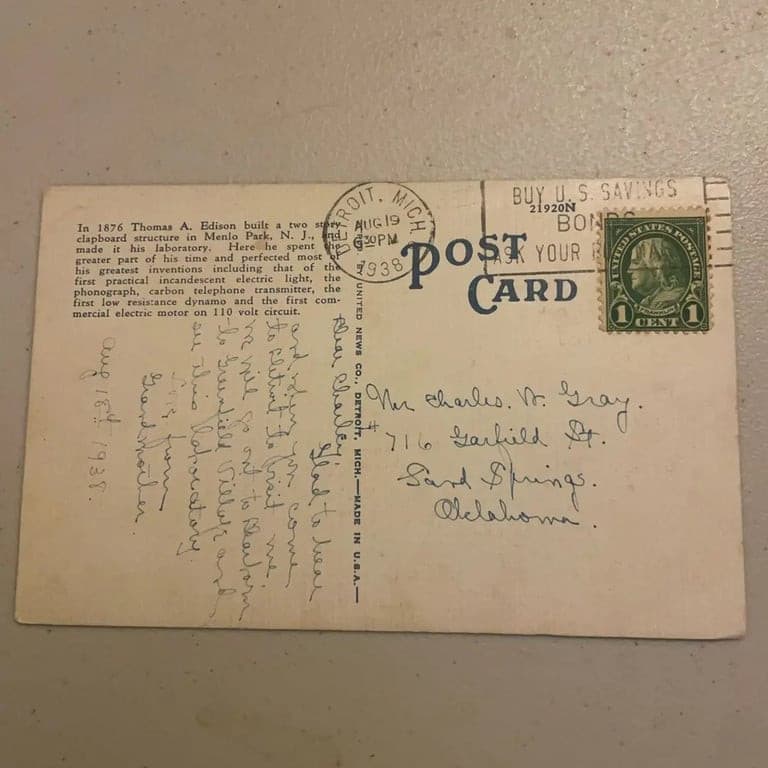 In 1876 Thomas A. Edison built a two story
clapboard structure in Menlo Park, N. J., and
made it his laboratory. Here he spent the
greater part of his time and perfected most of
his greatest inventions including that of the
first practical incandescent electric light, the
phonograph, carbon telephone transmitter, the
first low resistance dynamo and the first com-
mercial electric motor on 110 volt circuit.
DETROIT, MICH.
AUG 19
630PM
1938
BUY U. S. SAVINGS
BONDS
ASK YOUR
21920N
POST
CARD
UNITED STATES POSTAGE
FRANKLIN
1 CENT 1
UNITED NEWS CO., DETROIT, MICH.—MADE IN U.S.A.—
Dear Charley:
Glad to hear
and when you come
to Detroit to visit me,
we will go out to Dearborn
to Greenfield Village and
see this laboratory.
Love from
Grandmother.
Aug 18th 1938.
Mr Charles. W. Gray.
716 Garfield St.
Sand Springs.
Oklahoma.